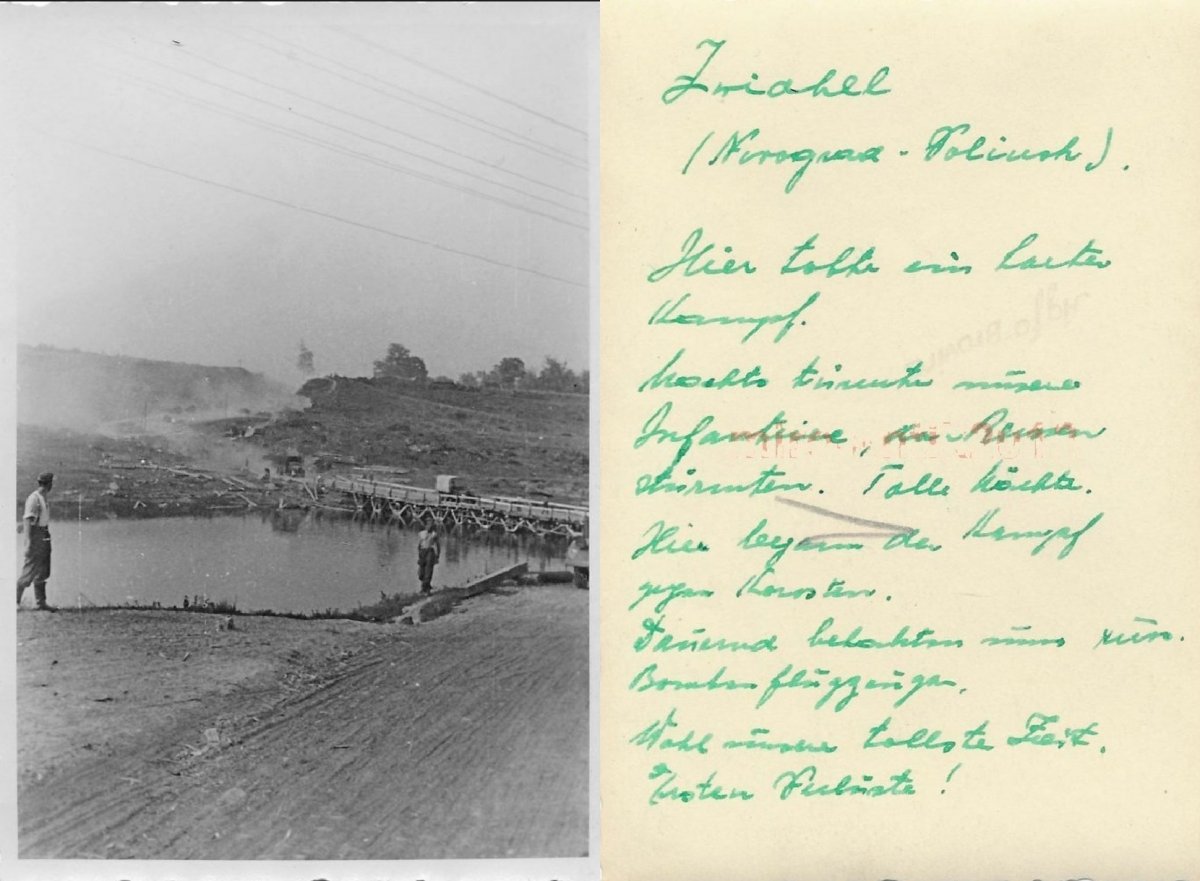 Zwiahel
(Novograd-Volinsk).
Hier tobte ein harter
Kampf.
Nachts türmte unsere
Infanterie, den Russen
stürmten. Tolle Nächte.
Hier begann der Kampf
gegen Korosten.
Dauernd belachten uns russ.
Bombenflugzeuge.
Wohl unsere tollste Zeit.
Ersten Verluste!